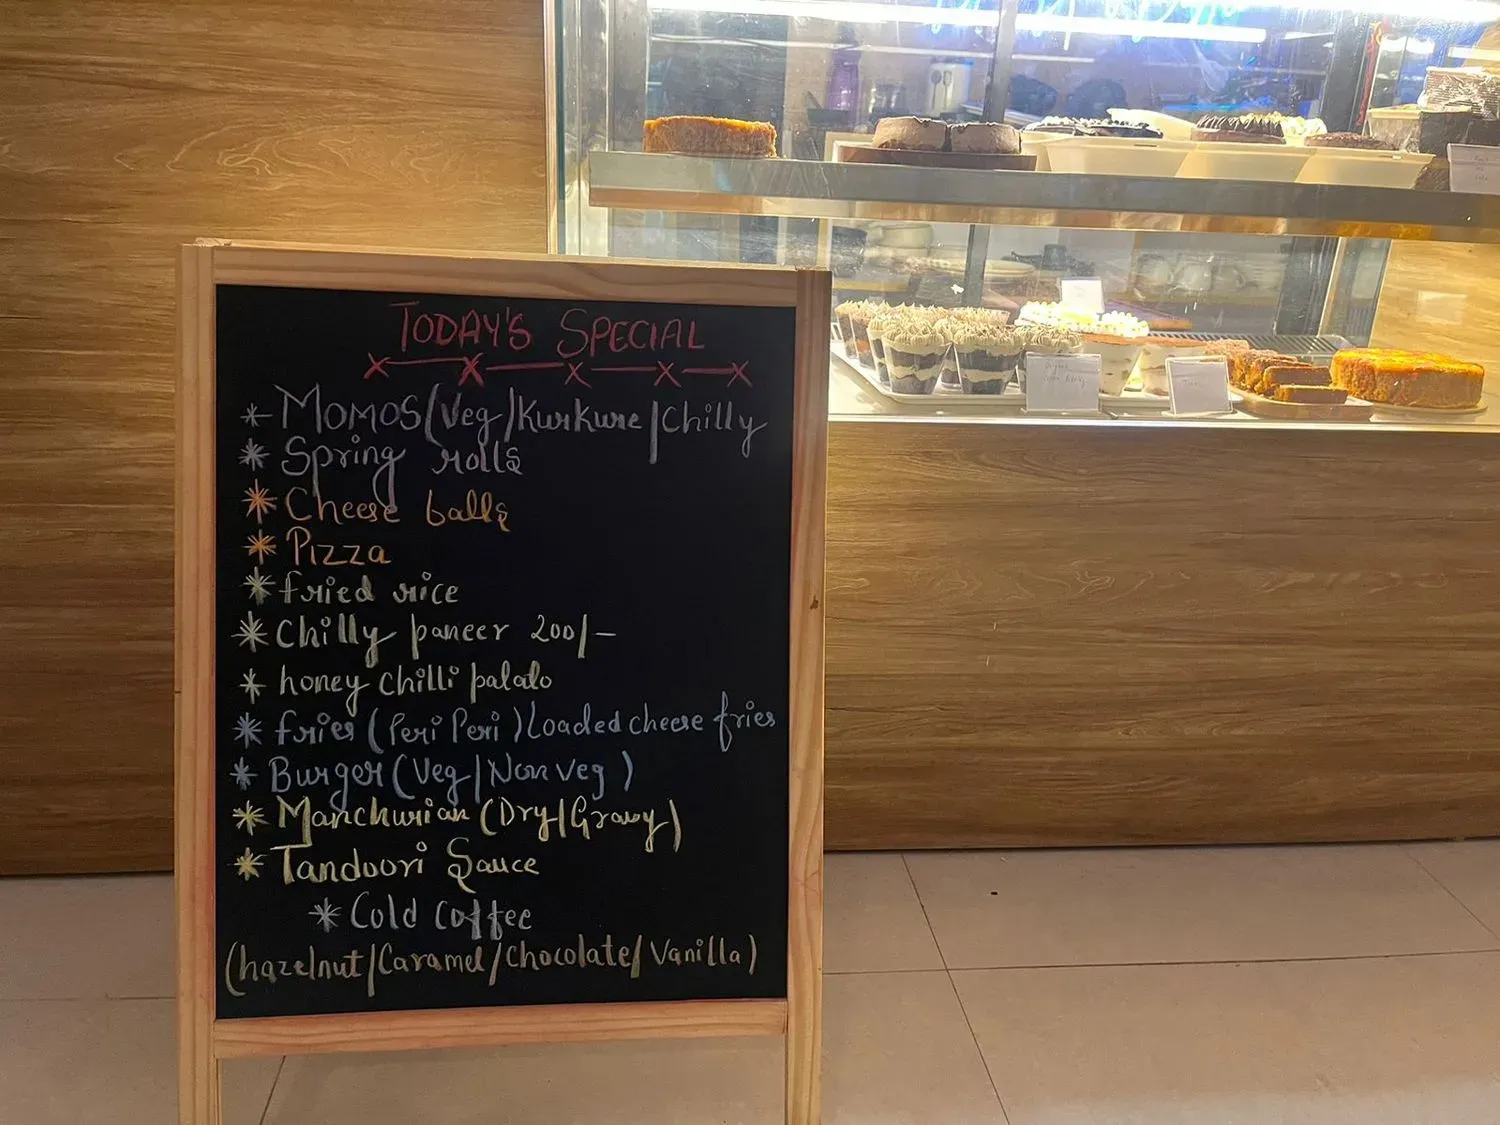 TODAY'S SPECIAL
* MOMOS (Veg) Kurkure | Chilly
* Spring rolls
* Cheese balls
* PIZZA
* fried rice
* Chilly paneer 200/-
* honey Chilli palalo
* fries (Peri Peri) Loaded cheese fries
* Burger (Veg | Non veg)
* Manchurian (Dry | Gravy)
* Tandoori Sauce
* Cold Coffee
(hazelnut/Caramel/Chocolate/Vanilla)